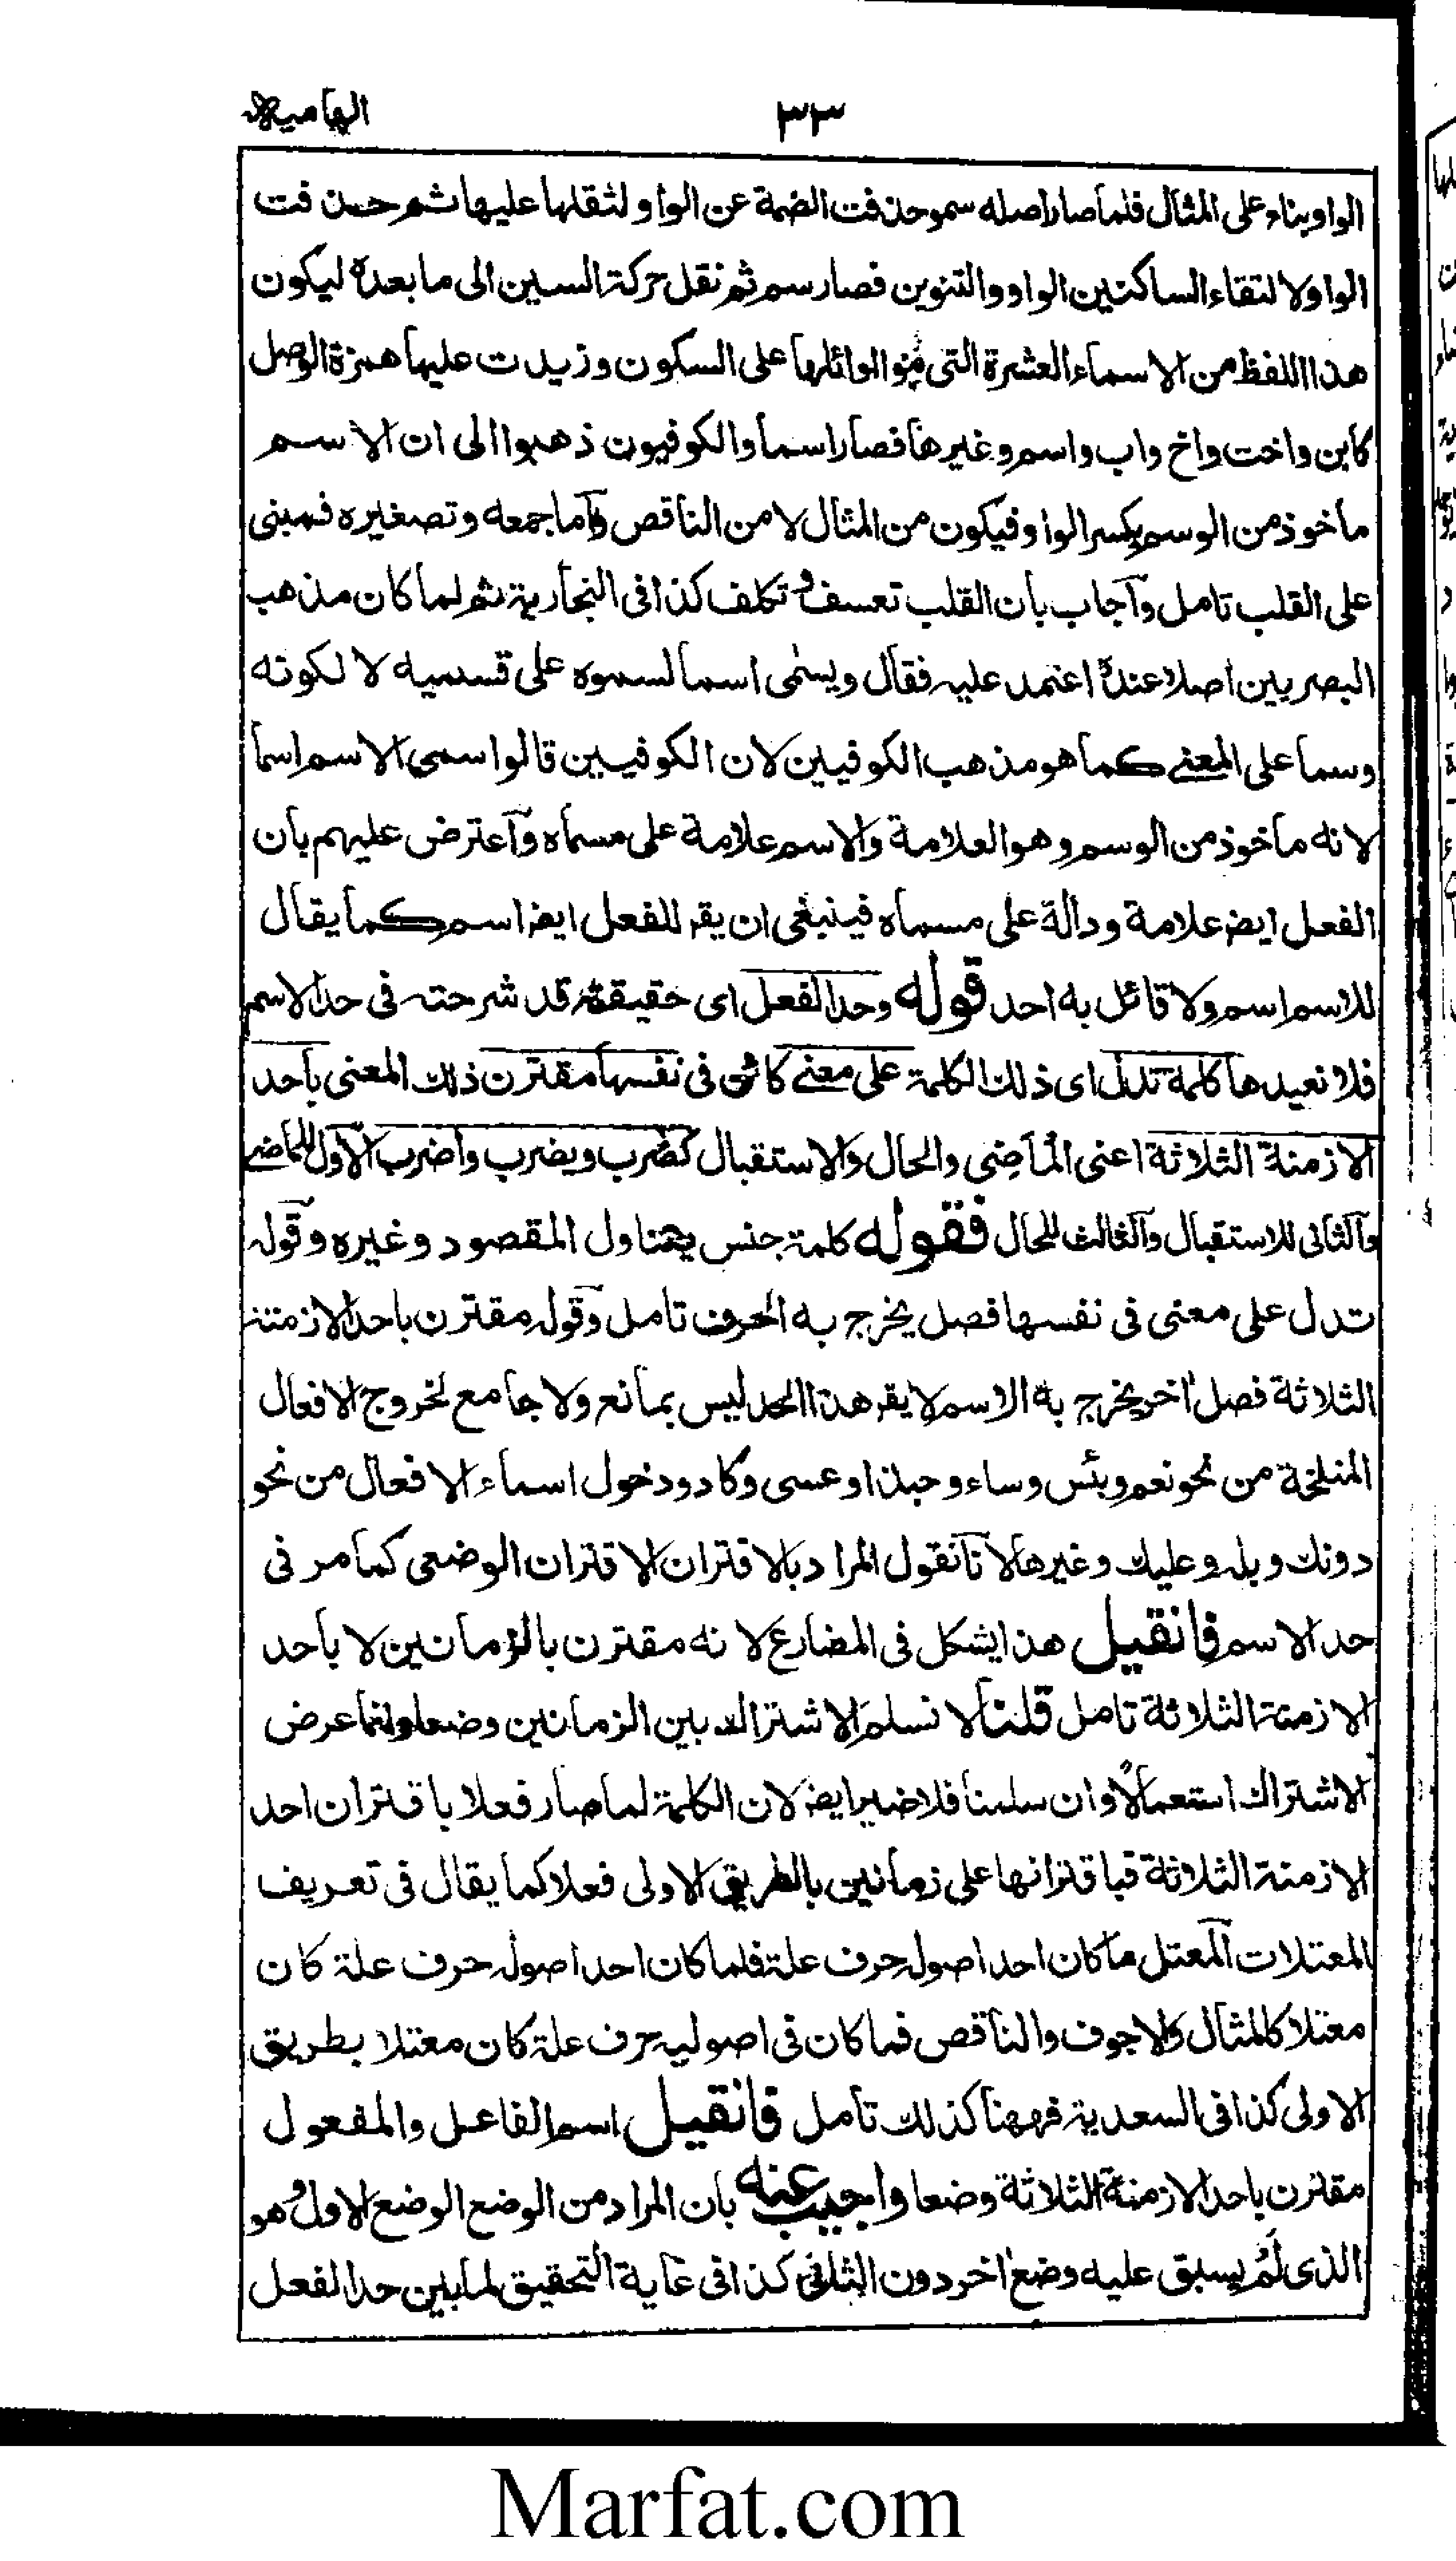 ٣٣ الهاميه
الواو بناء على المثال فلما صار اصله سمو حذفت الضمة عن الواو لثقلها عليها ثم حذفت
الواو لالتقاء الساكنين الواو والتنوين فصار سم ثم نقل حركة السين الى ما بعده ليكون
هذا اللفظ من الاسماء العشرة التى بنوا اوائلها على السكون وزيدت عليها همزة الوصل
كابن واخت واخ واب واسم وغيرها فصار اسما والكوفيون ذهبوا الى ان الاسم
ماخوذ من الوسم بكسر الواو فيكون من المثال لا من الناقص واما جمعه وتصغيره فمبنى
على القلب تامل وآجاب بان القلب تعسف وتكلف كذا فى النجارية ثم لما كان مذهب
البصريين اصلا عنده اعتمد عليه فقال ويسمى اسما لسموه على قسميه لا لكونه
وسما على المعنى كما هو مذهب الكوفيين لان الكوفيين قالوا سمى الاسم اسما
لانه ماخوذ من الوسم وهو العلامة والاسم علامة على مسماه وآعترض عليهم بان
الفعل ايضا علامة ودالة على مسماه فينبغى ان يقر للفعل ايضا اسم كما يقال
للاسم اسم ولا قائل به احد قوله وحد الفعل اى حقيقته قد شرحته فى حد الاسم
فلا نعيدها كلمة تدل اى ذلك الكلمة على معنى كائن فى نفسها مقترن ذلك المعنى باحد
الازمنة الثلاثة اعنى الماضى والحال والاستقبال كضرب ويضرب واضرب الاول للماضى
وآلثانى للاستقبال وآلثالث للحال فقوله كلمة جنس يتناول المقصود وغيره وقوله
تدل على معنى فى نفسها فصل يخرج به الحرف تامل وقوله مقترن باحد الازمنة
الثلاثة فصل اخر يخرج به الاسم لا يقر هذا الحد ليس بمانع ولا جامع لخروج الافعال
المنلخة من نحو نعم وبئس وساء وحبذا وعسى وكاد ودخول اسماء الافعال من نحو
دونك وبله وعليك وغيرها لانا نقول المراد بالاقتران الاقتران الوضعى كما مر فى
حد الاسم فان قيل هذا يشكل فى المضارع لانه مقترن بالزمانين لا باحد
الازمنة الثلاثة تامل قلنا لا نسلم الاشتراك بين الزمانين وضعا وانما عرض
الاشتراك استعمالا وان سلمنا فلا ضير ايضا لان الكلمة لما صار فعلا باقتران احد
الازمنة الثلاثة فباقترانها على زمانين بالطريق الاولى فعلا كما يقال فى تعريف
المعتلات المعتل ما كان احد اصوله حرف علة فلما كان احد اصوله حرف علة كان
معتلا كالمثال والاجوف والناقص فما كان فى اصوليه حرف علة كان معتلا بطريق
الاولى كذا فى السعدية فههنا كذلك تامل فان قيل اسم الفاعل والمفعول
مقترن باحد الازمنة الثلاثة وضعا واجيب عنه بان المراد من الوضع الوضع الاول وهو
الذى لم يسبق عليه وضع اخر دون الثانى كذا فى غاية التحقيق لما بين حد الفعل
Marfat.com